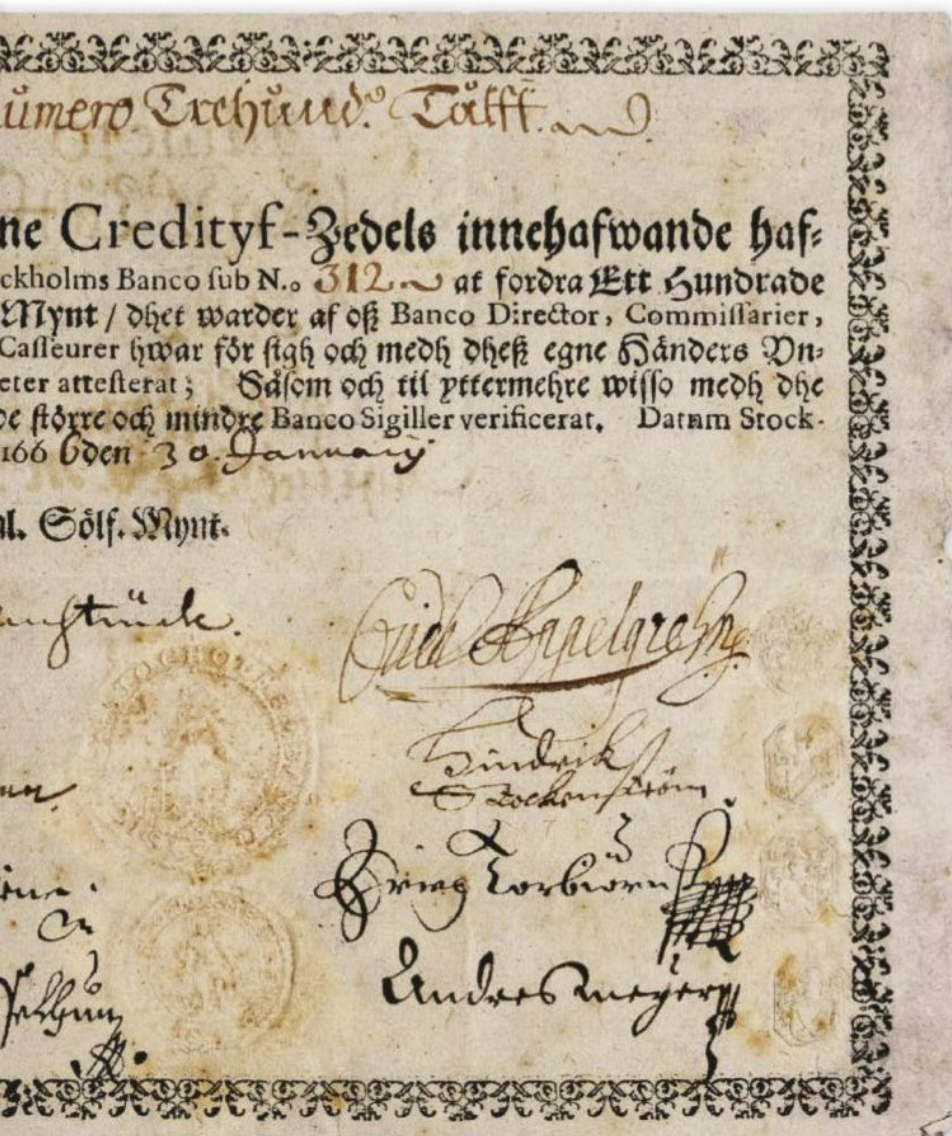 Numero Trehund.º Tålff.
ne Credityf-Zedels innehafwande haf-
ockholms Banco sub N.o 312 at fordra Ett Hundrade
Mynt / dhet warder af oß Banco Director, Commissarier,
Casseurer hwar för sigh och medh dheß egne Händers Vn-
eter attesterat; Såsom och til yttermehre wisso medh dhe
e större och mindre Banco Sigiller verificerat. Datum Stock-
1666 den 30. January
al. Sölf. Mynt.
Appelgrehn
Hindrik
Stockenström
Torbiörn
Andres meyer